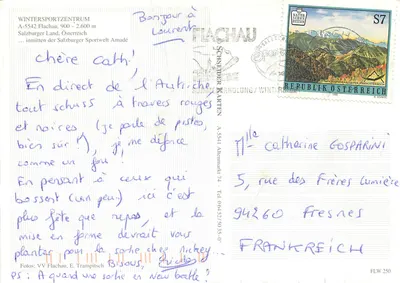 WINTERSPORTZENTRUM
A-5542 Flachau, 900 - 2.600 m
Salzburger Land, Österreich
... inmitten der Salzburger Sportwelt Amadé
Bonjour à
Laurent
Chère Cath!
En direct de l'Autriche
tout schuss à travers rouges
et noires (je parle de pistes,
bien sûr!), je me défonce
comme un fou!
En pensant à ceux qui
bossent (un peu) ici c'est
plus fête que repos, et la
mise en forme devrait vous
planter pour la sortie chez Mickey
Bisous,
PS: A quand une sortie en New Beetle?
Fotos: VV Flachau, E. Trampitsch
SCHREIBER KARTEN
A-5541 Altenmarkt
FLACHAU
S7
REPUBLIK ÖSTERREICH
Mlle Catherine GOSPARINI
5, rue des Frères Lumière
94260 Fresnes
FRANKREICH
FLW 250